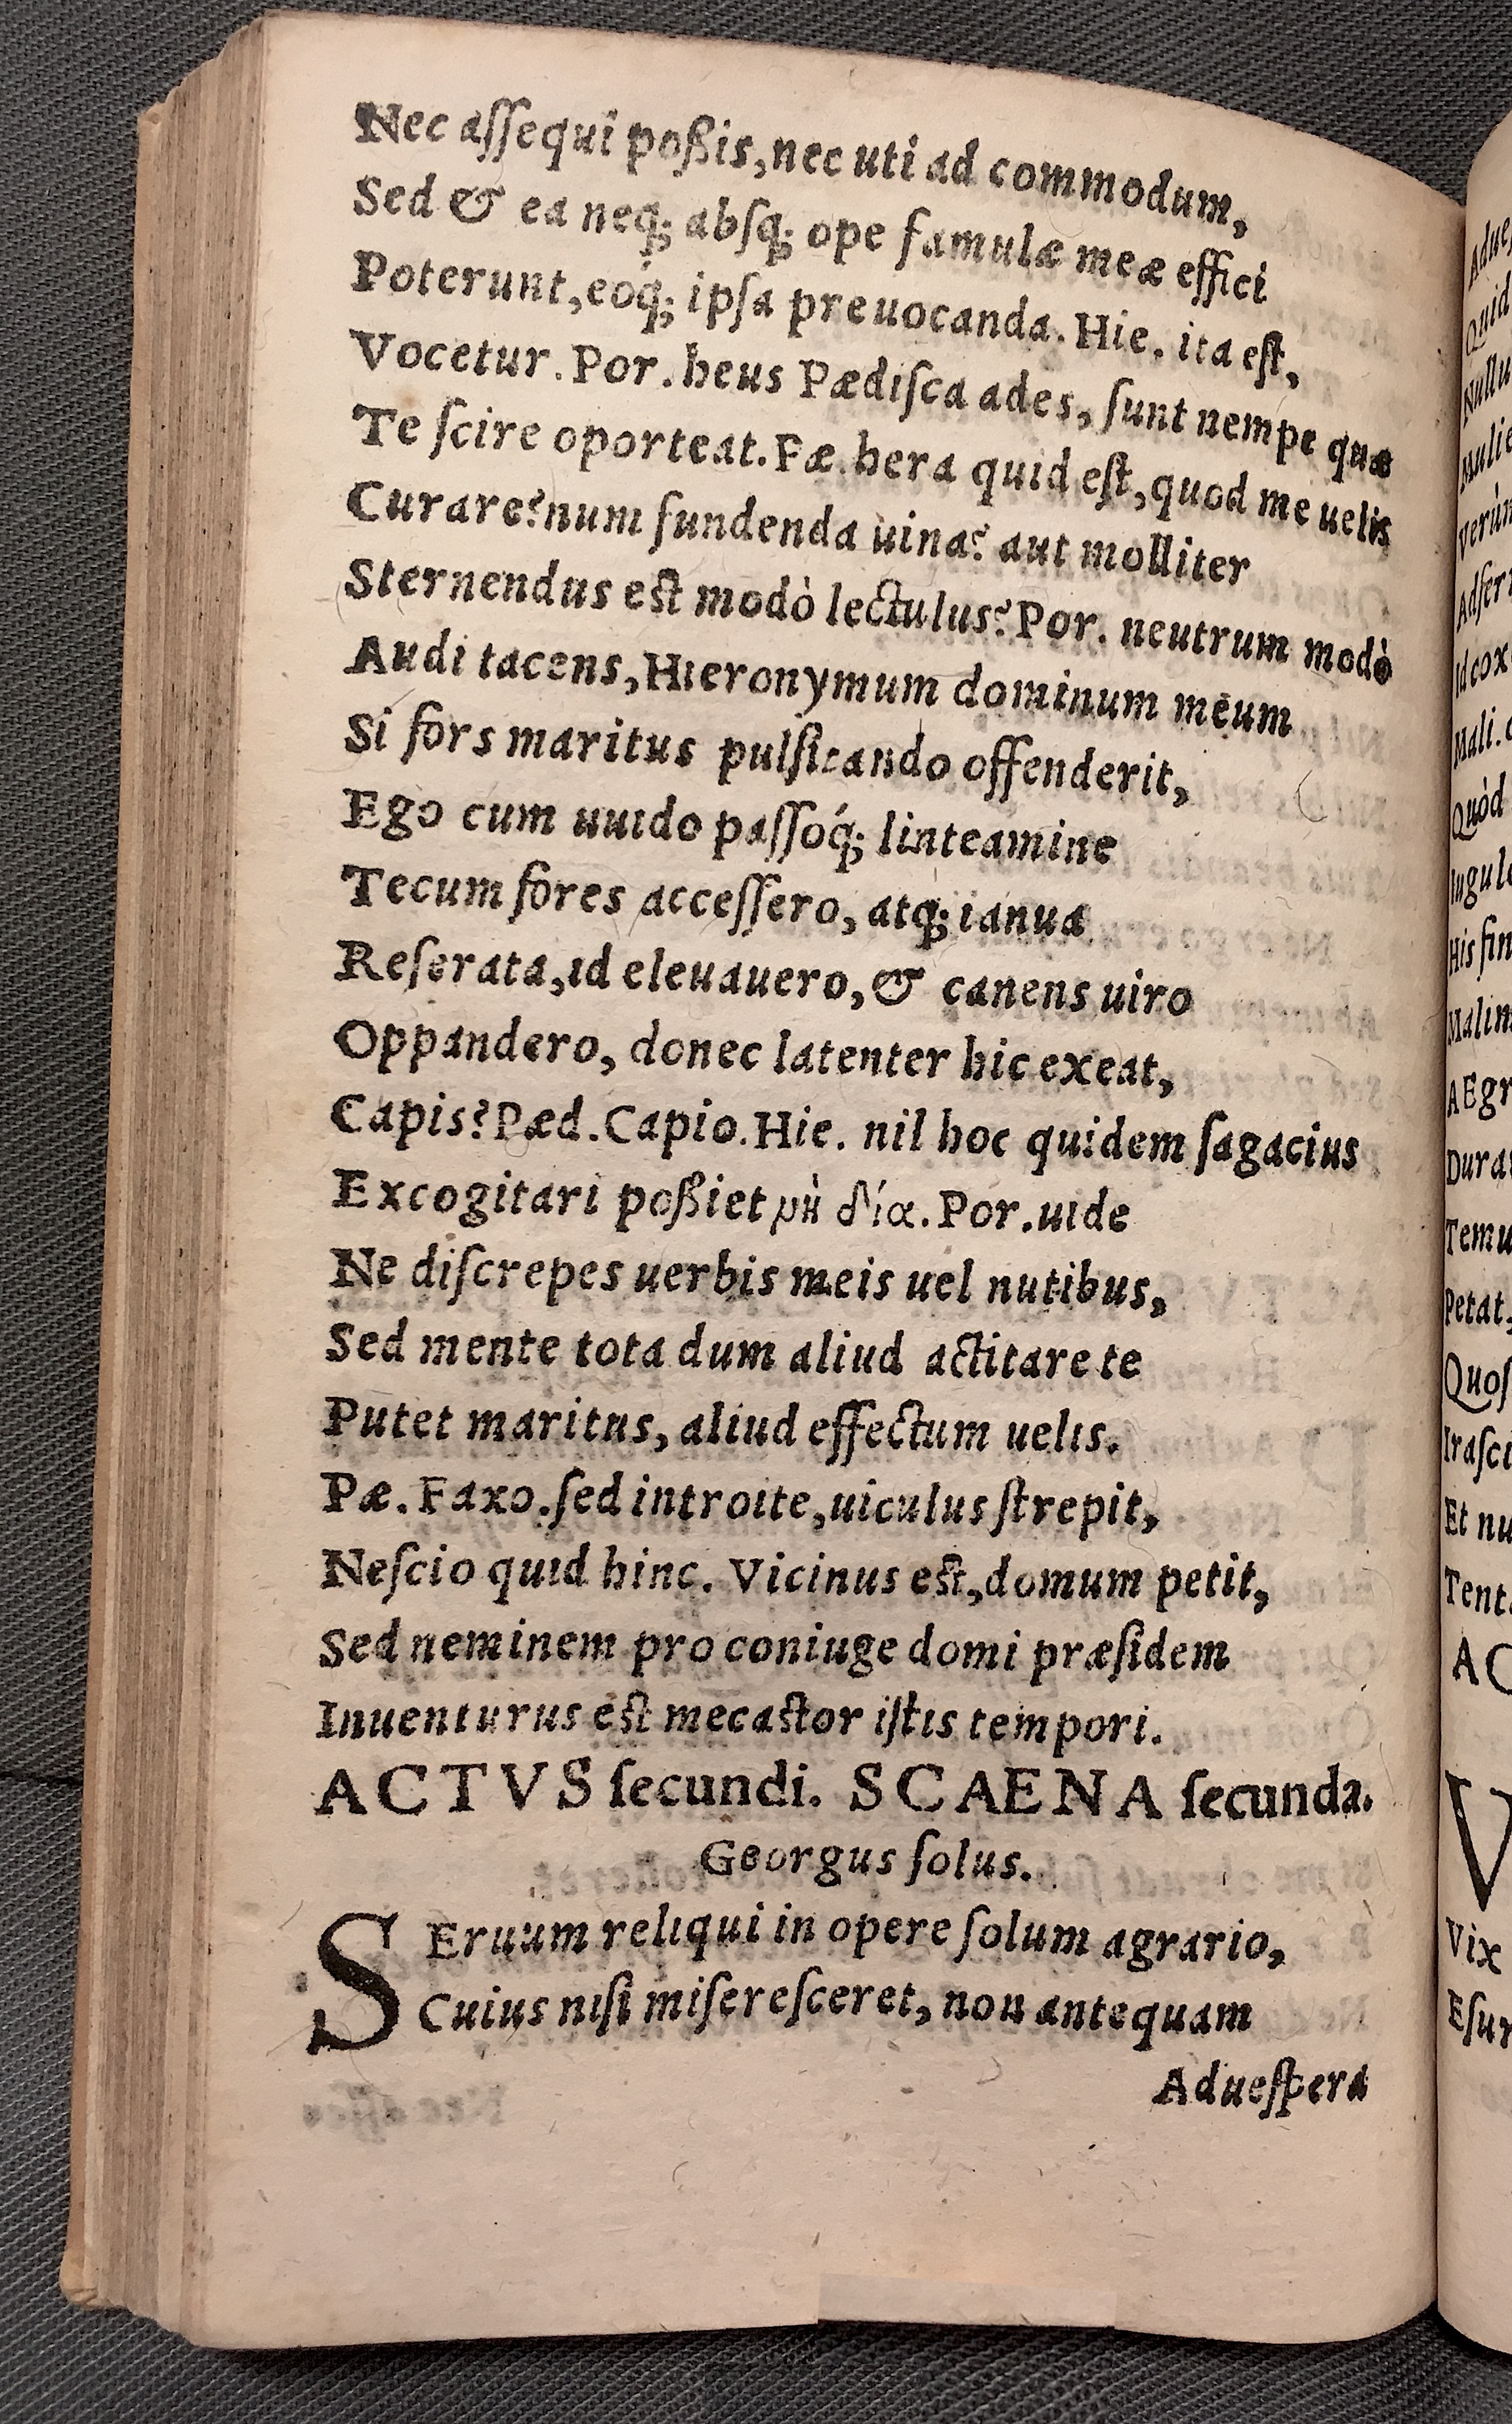 Nec aſſequi poßis, nec uti ad commodum,
Sed & ea neq; abſq; ope famulæ meæ effici
Poterunt, eoq́; ipſa preuocanda. Hie. ita eſt,
Vocetur. Por. heus Pædiſca ades, ſunt nempe quæ
Te ſcire oporteat. Pæ. hera quid eſt, quod me uelis
Curare? num fundenda uina? aut molliter
Sternendus eſt modò lectulus? Por. neutrum modò
Audi tacens, Hieronymum dominum meum
Si fors maritus pulſitando offenderit,
Ego cum uuido paſſoq́; linteamine
Tecum fores acceſſero, atq; ianua
Reſerata, id eleuauero, & canens uiro
Oppandero, donec latenter hic exeat,
Capis? Pæd. Capio. Hie. nil hoc quidem ſagacius
Excogitari poßiet μὴ δία. Por. uide
Ne diſcrepes uerbis meis uel nutibus,
Sed mente tota dum aliud actitare te
Putet maritus, aliud effectum uelis.
Pæ. Faxo. ſed introite, uiculus ſtrepit,
Neſcio quid hinc. Vicinus eſt, domum petit,
Sed neminem pro coniuge domi præſidem
Inuenturus eſt mecaſtor iſtis tempori.
ACTVS ſecundi. SCAENA ſecunda.
Georgus ſolus.
SEruum reliqui in opere ſolum agrario,
Cuius niſi miſereſceret, non antequam
Adueſpera
Quid
Nullu
Mulie
Verùm
Id cox
Quòd
His fin
AEgr
Temu
Petat,
Quoſ
Iraſci
Et nu
AC
V
Vix
Eſur